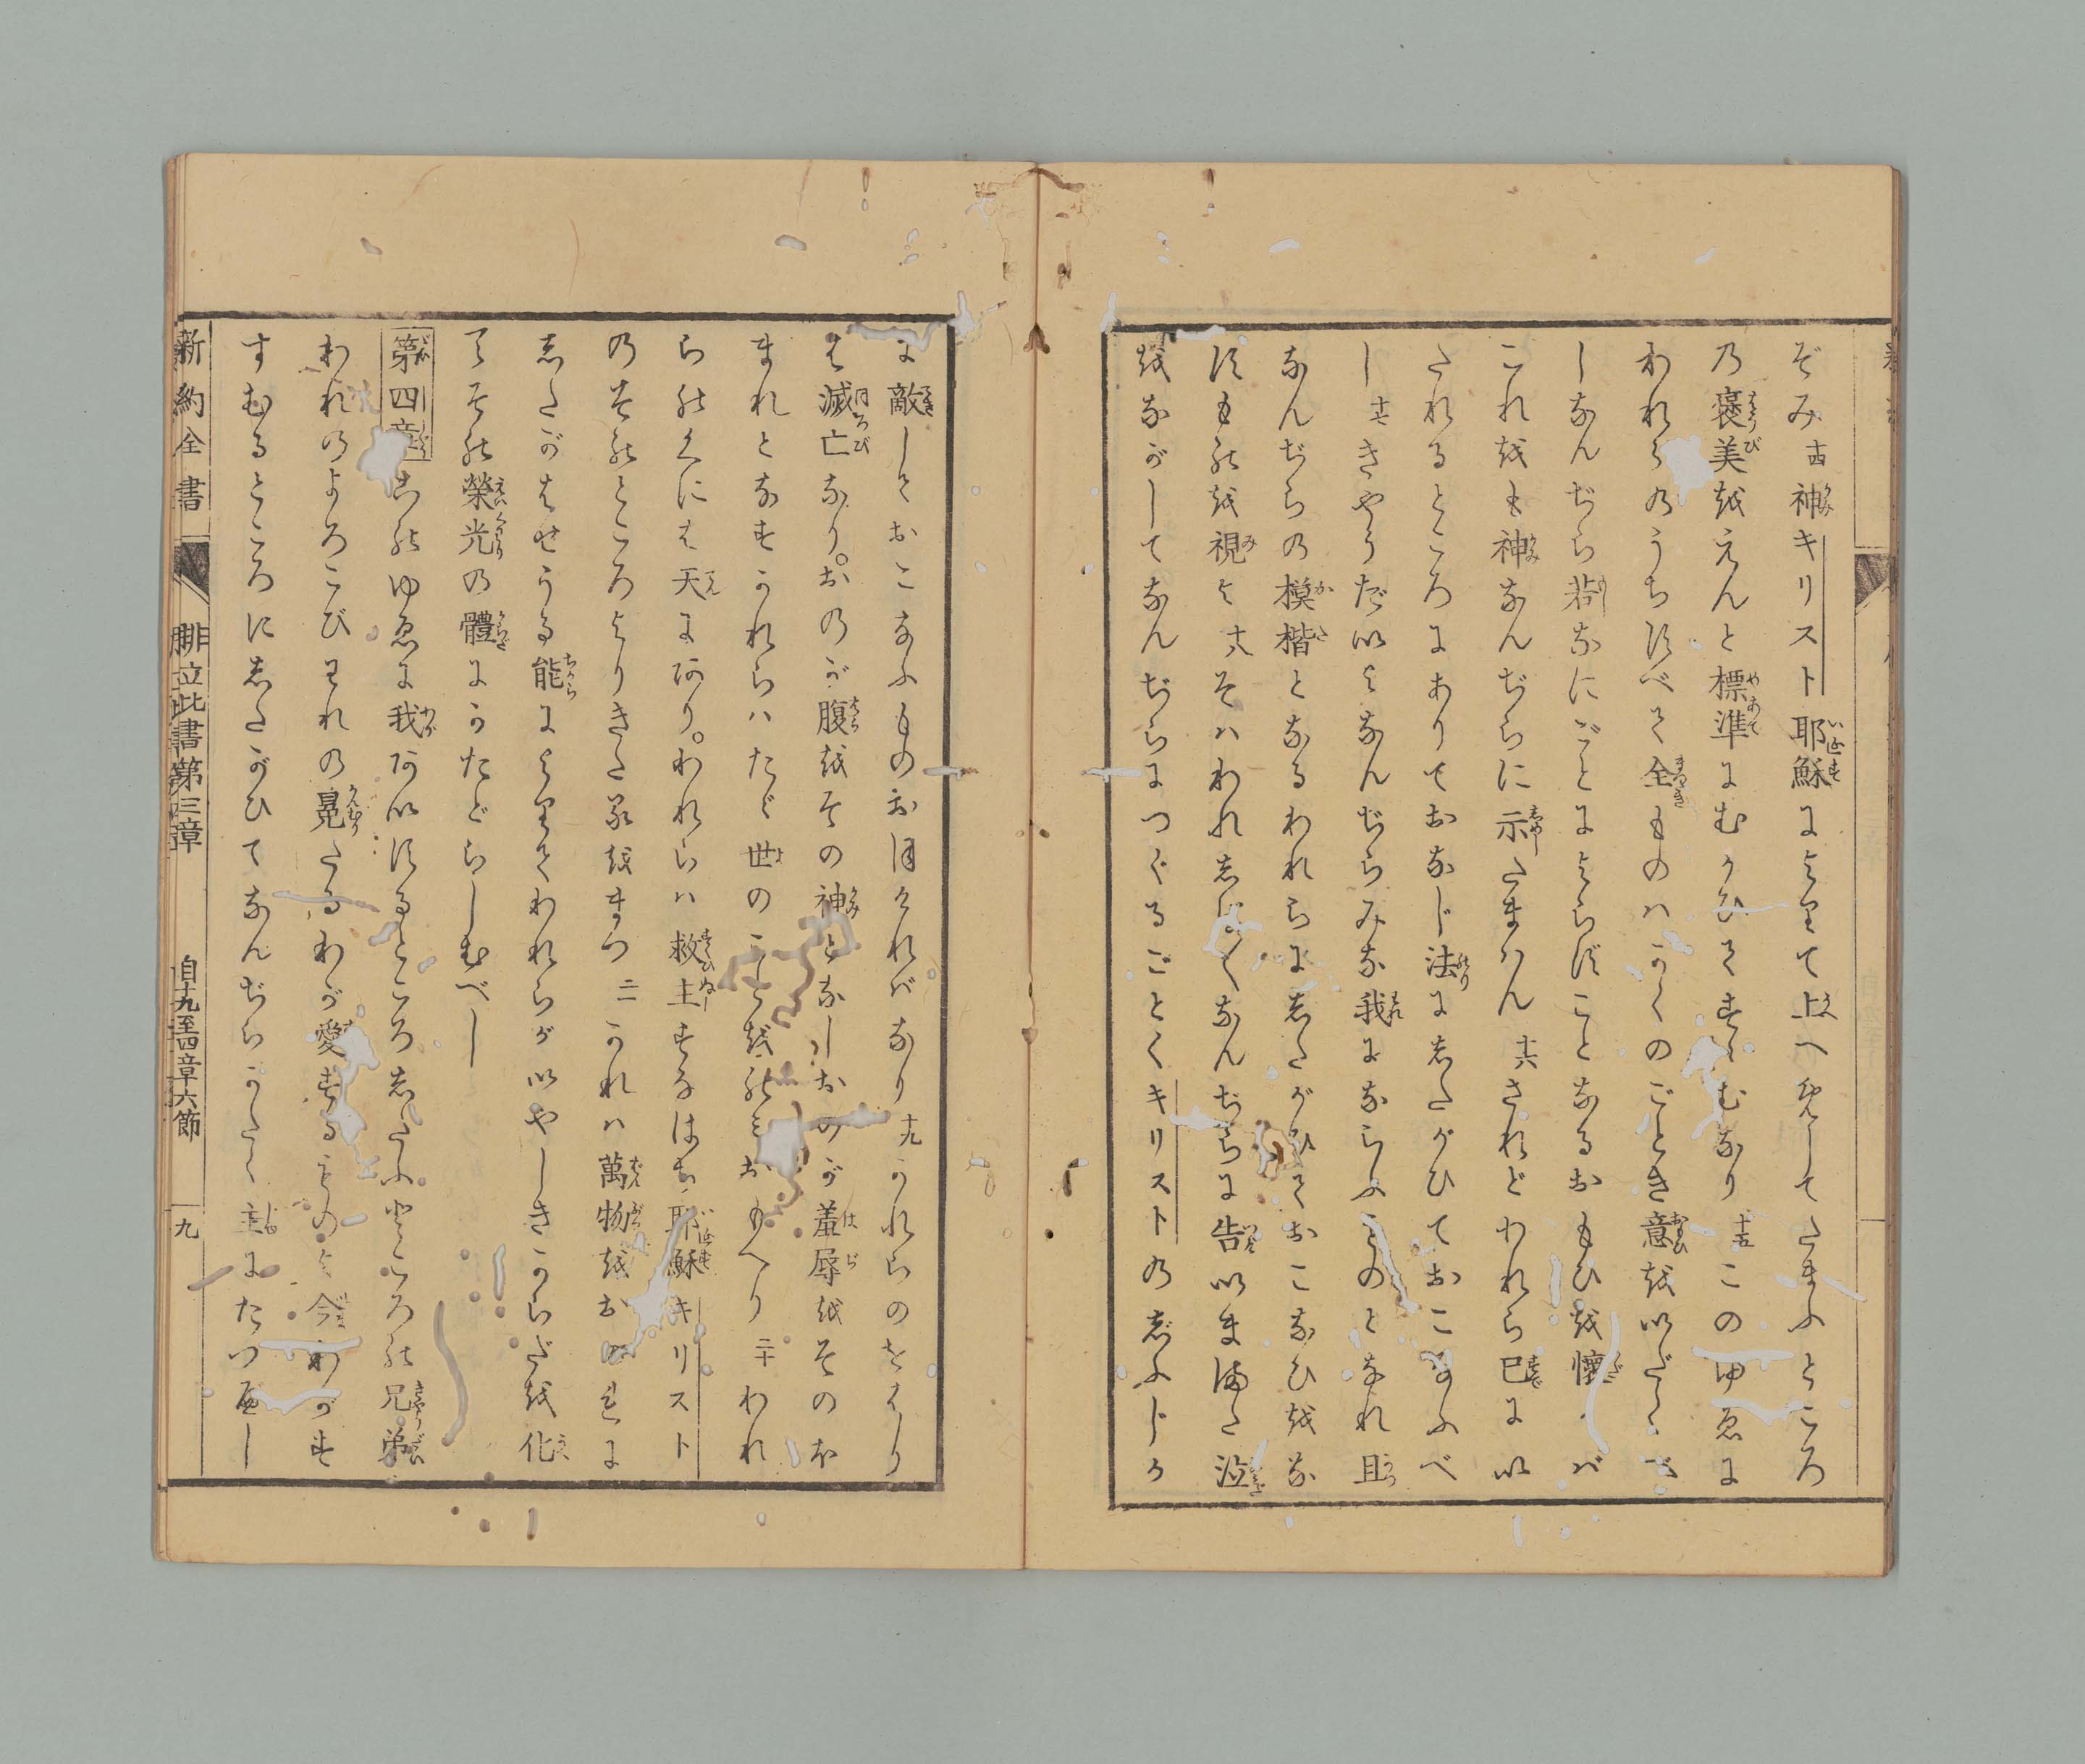 ぞみ十四神キリスト耶穌によりて上へ召してたまふところ
の褒美をえんと標準にむかひてすゝむなり十五このゆゑに
われらのうちすべて全ものハかくのごとき意をいだくべ
しなんぢら若なにごとによらずことなるおもひを懐かバ
これをも神なんぢらに示たまはん十六されどわれら已にい
たれるところにありておなじ法にしたがひておこなふべ
し十七きやうだいよなんぢらみな我にならふものとなれ且
なんぢらの模楷となるわれらにしたがひておこなひをな
すものを視よ十八そハわれしば〱なんぢらに告いままた泣
をながしてなんぢらにつぐるごとくキリストの志ふじか
に敵しておこなふものおほければなり十九かれらのをはり
は滅亡なり。おのが腹をその神となしおのが羞辱をそのほ
まれとなすかれらハたゞ世のことをのみおもへり二十われ
らのくにハ天にあり。われらハ救主すなはち耶穌キリスト
のそのところよりきたるをまつ二一かれハ萬物をおのれに
したがはせうる能によりてわれらがいやしきからだを化
てその榮光の體にかたどらしむべし
第四章このゆゑに我あいするところしたふところの兄弟
われのよろこびわれの冕たるわが愛するものよ今わがす
すむるところにしたがひてなんぢらかたく主にたつべし
新約全書　腓立比書第三章　自十九至四章六節　九